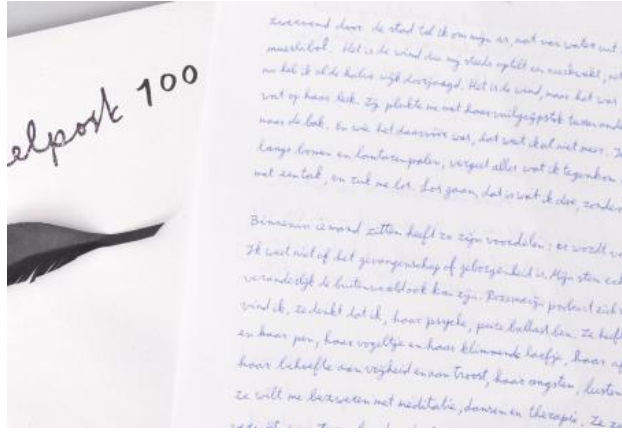 elpost 100
zwervend door de stad tol ik om mijn as, nat van water uit
muizenbol. Het is de wind die mij steeds optilt en neerkwakt,
nu heb ik al de halve wijk doorjaagd. Het is de wind, maar het was
wat op haar leek. Zij plukte me met haar vuilgrijpstok tussen
naar de bak. En wie het daarvóór was, dat weet ik al niet meer.
langs bomen en lantarenpalen, vergeet alles wat ik tegenkom
met een tak, en ruk me los. Los gaan, dat is wat ik doe, zonder
Binnenin iemand zitten heeft zo zijn voordelen; er wordt
Ik weet niet of het gevangenschap of geborgenheid is. Mijn stem
veranderlijk de buitenwereld ook kan zijn. Rozemarijn probeert zich
vind ik, ze denkt dat ik, haar psyche, pure ballast ben. Ze heeft
en haar pen, haar vogeltje en haar klimmende loofje, haar
haar behoefte aan vrijheid en aan troost, haar angsten, lusten
ze wilt me bezweren met meditatie, dansen en therapie. Ze